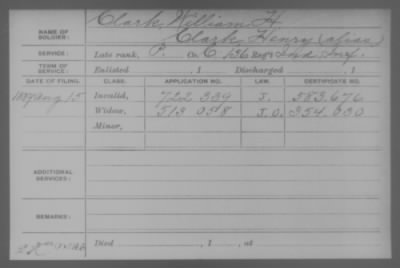 NAME OF SOLDIER: Clark, William H.
Clark, Henry (alias)
SERVICE: Late rank, P. Co. C, 136 Reg't Ind. Inf.
TERM OF SERVICE: Enlisted , 1 Discharged , 1
DATE OF FILING. CLASS. APPLICATION NO. LAW. CERTIFICATE NO.
Aug 15 Invalid, 722 339 J. 583.676
Widow, 513 058 J.O. 354.030
Minor,
ADDITIONAL SERVICES:
REMARKS:
Died , 1 , at